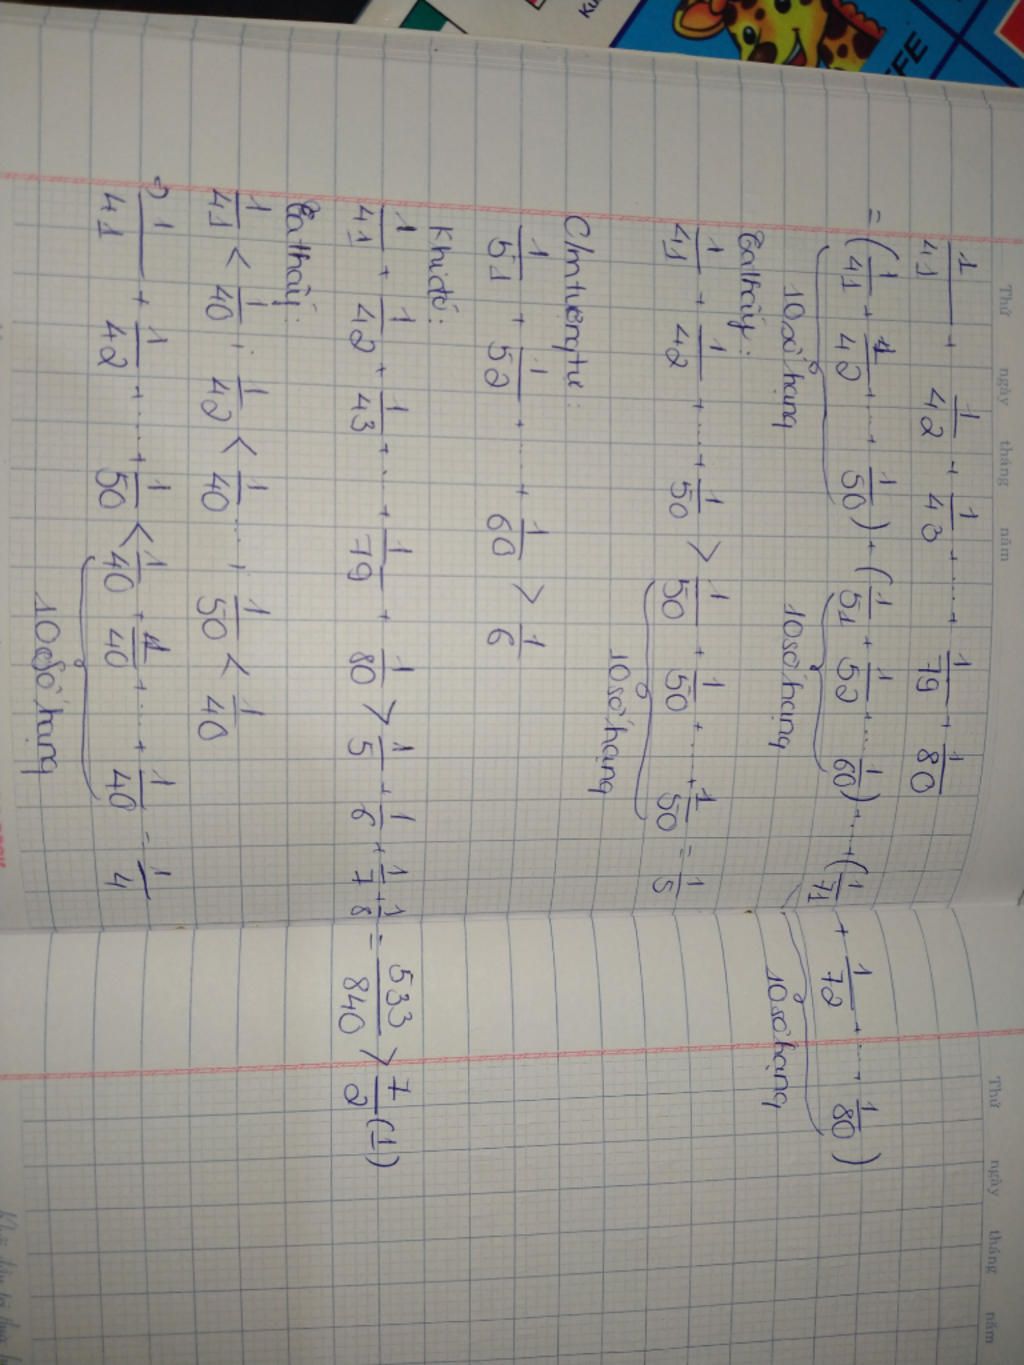 KU
FFE
Thứ ngày tháng năm
Thứ ngày tháng năm
1/41 + 1/42 + 1/43 + .... + 1/79 + 1/80
= (1/41 + 1/42 + ... + 1/50) + (1/51 + 1/52 + ... 1/60) + ... + (1/71 + 1/72 + ... + 1/80)
10 số hạng 10 số hạng 10 số hạng
Ta thấy:
1/41 + 1/42 + .... + 1/50 > 1/50 + 1/50 + .... + 1/50 = 1/5
10 số hạng
C/m tương tự:
1/51 + 1/52 + .... + 1/60 > 1/6
Khi đó:
1/41 + 1/42 + 1/43 + ... + 1/79 + 1/80 > 1/5 + 1/6 + 1/7 + 1/8 = 533/840 > 7/2 (1)
Ta thấy:
1/41 < 1/40 . 1/42 < 1/40 ... . 1/50 < 1/40
=> 1/41 + 1/42 + .... + 1/50 < 1/40 + 1/40 + .... + 1/40 = 1/4
10 số hạng